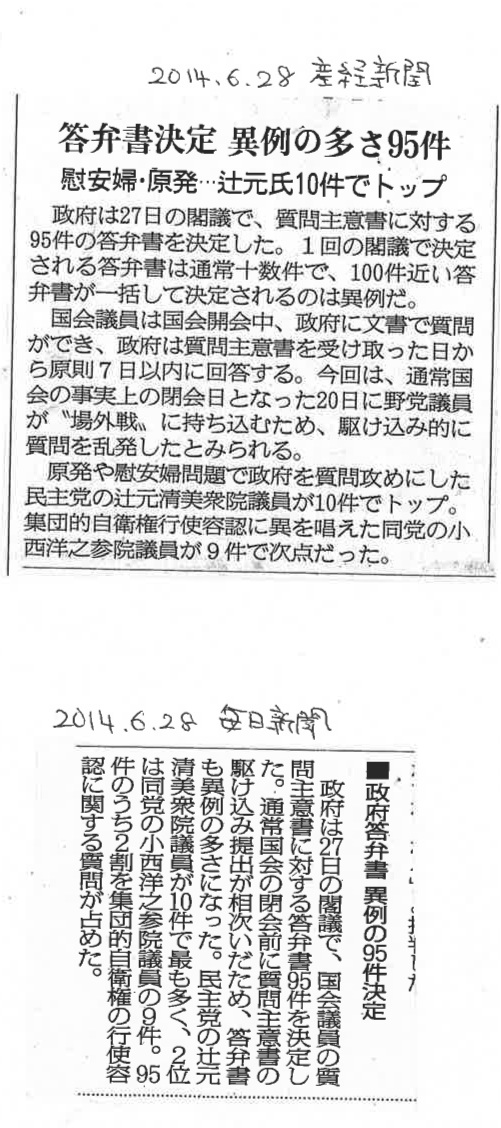 2014.6.28 産経新聞
答弁書決定 異例の多さ95件
慰安婦・原発…辻元氏10件でトップ
政府は27日の閣議で、質問主意書に対する
95件の答弁書を決定した。1回の閣議で決定
される答弁書は通常十数件で、100件近い答
弁書が一括して決定されるのは異例だ。
国会議員は国会開会中、政府に文書で質問
ができ、政府は質問主意書を受け取った日か
ら原則7日以内に回答する。今回は、通常国
会の事実上の閉会日となった20日に野党議員
が〝場外戦〟に持ち込むため、駆け込み的に
質問を乱発したとみられる。
原発や慰安婦問題で政府を質問攻めにした
民主党の辻元清美衆院議員が10件でトップ。
集団的自衛権行使容認に異を唱えた同党の小
西洋之参院議員が9件で次点だった。
2014.6.28 毎日新聞
■政府答弁書 異例の95件決定
政府は27日の閣議で、国会議員の質
問主意書に対する答弁書95件を決定し
た。通常国会の閉会前に質問主意書の
駆け込み提出が相次いだため、答弁書
も異例の多さになった。民主党の辻元
清美衆院議員が10件で最も多く、2位
は同党の小西洋之参院議員の9件。95
件のうち2割を集団的自衛権の行使容
認に関する質問が占めた。